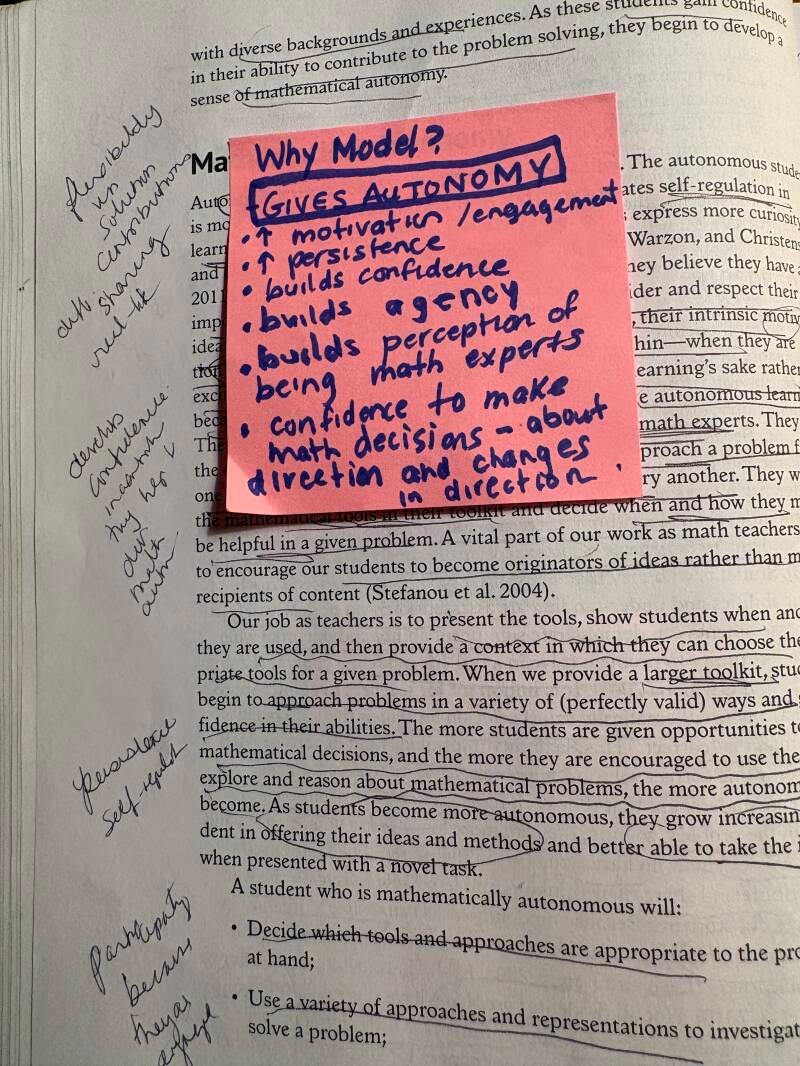 with diverse backgrounds and experiences. As these students gain confidence
in their ability to contribute to the problem solving, they begin to develop a
sense of mathematical autonomy.
flexibility
in
solution
contributions
sharing
Ma
Why Model?
GIVES AUTONOMY
• ↑ motivation / engagement
• ↑ persistence
• builds confidence
• builds agency
• builds perception of
being math experts
• confidence to make
math decisions – about
direction and changes
in direction.
. The autonomous stude
Auto
ates self-regulation in
is mo
; express more curiosity
learn
Warzon, and Christens
and
hey believe they have a
201
ider and respect their
imp
, their intrinsic motiv
idea
hin—when they are
tion
earning's sake rather
exc
e autonomous learn
bec
math experts. They
The
proach a problem f
the
ry another. They w
one
the mathematical tools in their toolkit and decide when and how they m
be helpful in a given problem. A vital part of our work as math teachers
to encourage our students to become originators of ideas rather than m
recipients of content (Stefanou et al. 2004).
confidence
math
Our job as teachers is to present the tools, show students when and
they are used, and then provide a context in which they can choose the
priate tools for a given problem. When we provide a larger toolkit, stud
begin to approach problems in a variety of (perfectly valid) ways and
fidence in their abilities. The more students are given opportunities to
mathematical decisions, and the more they are encouraged to use the
explore and reason about mathematical problems, the more autonom
become. As students become more autonomous, they grow increasin
dent in offering their ideas and methods and better able to take the i
when presented with a novel task.
persistence
self-regulat
A student who is mathematically autonomous will:
• Decide which tools and approaches are appropriate to the pro
at hand;
• Use a variety of approaches and representations to investigat
solve a problem;